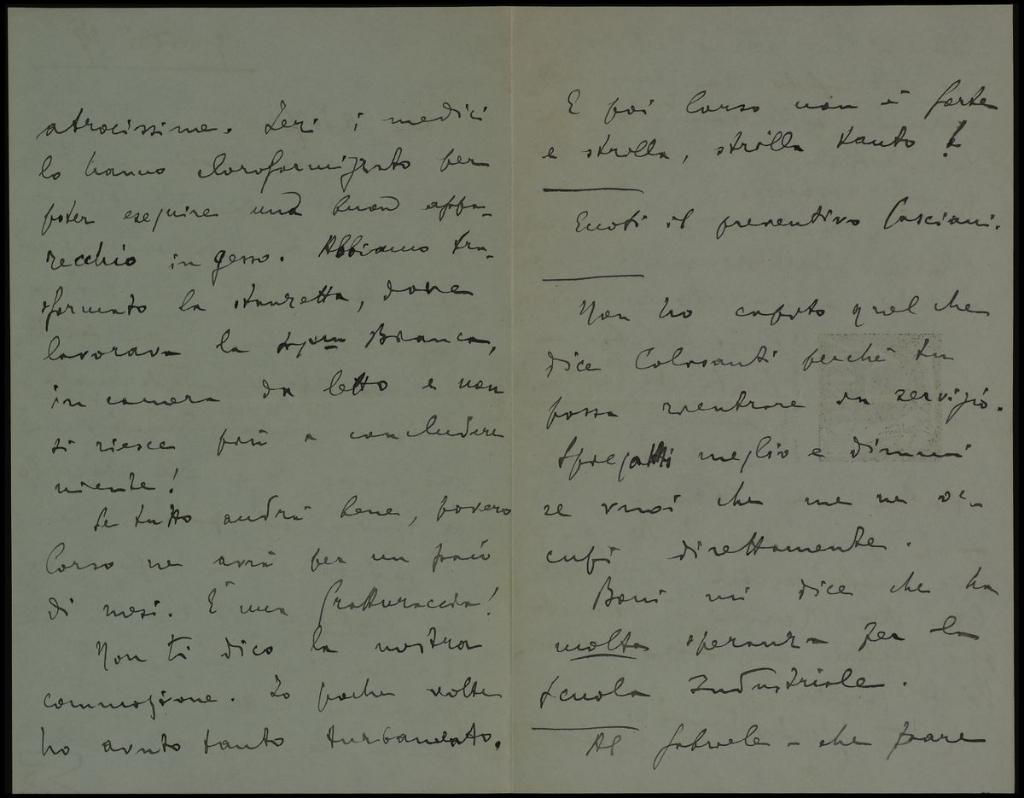 atrocissime. Ieri i medici
lo hanno cloroformizzato per
poter eseguire una buona appa-
recchio in gesso. Abbiamo tra-
sformato la stanzetta, dove
lavorava la Sig.na Bianca,
in camera da letto e non
si riesce più a concludere
niente!
Se tutto andrà bene, povero
Corso ne avrà per un paio
di mesi. È una fratturaccia!
Non ti dico la nostra
commozione. Io poche volte
ho avuto tanto turbamento.
E poi Corso non è forte
e strilla, strilla tanto!
il preventivo Casciani.
Non ho capito quel che
dice Colasanti perché tu
possa rientrare in servizio.
Spiegati meglio e dimmi
se vuoi che me ne oc-
cupi direttamente.
Boni mi dice che ha
molta speranza per la
Scuola Industriale.
Al Gabriele - che pare